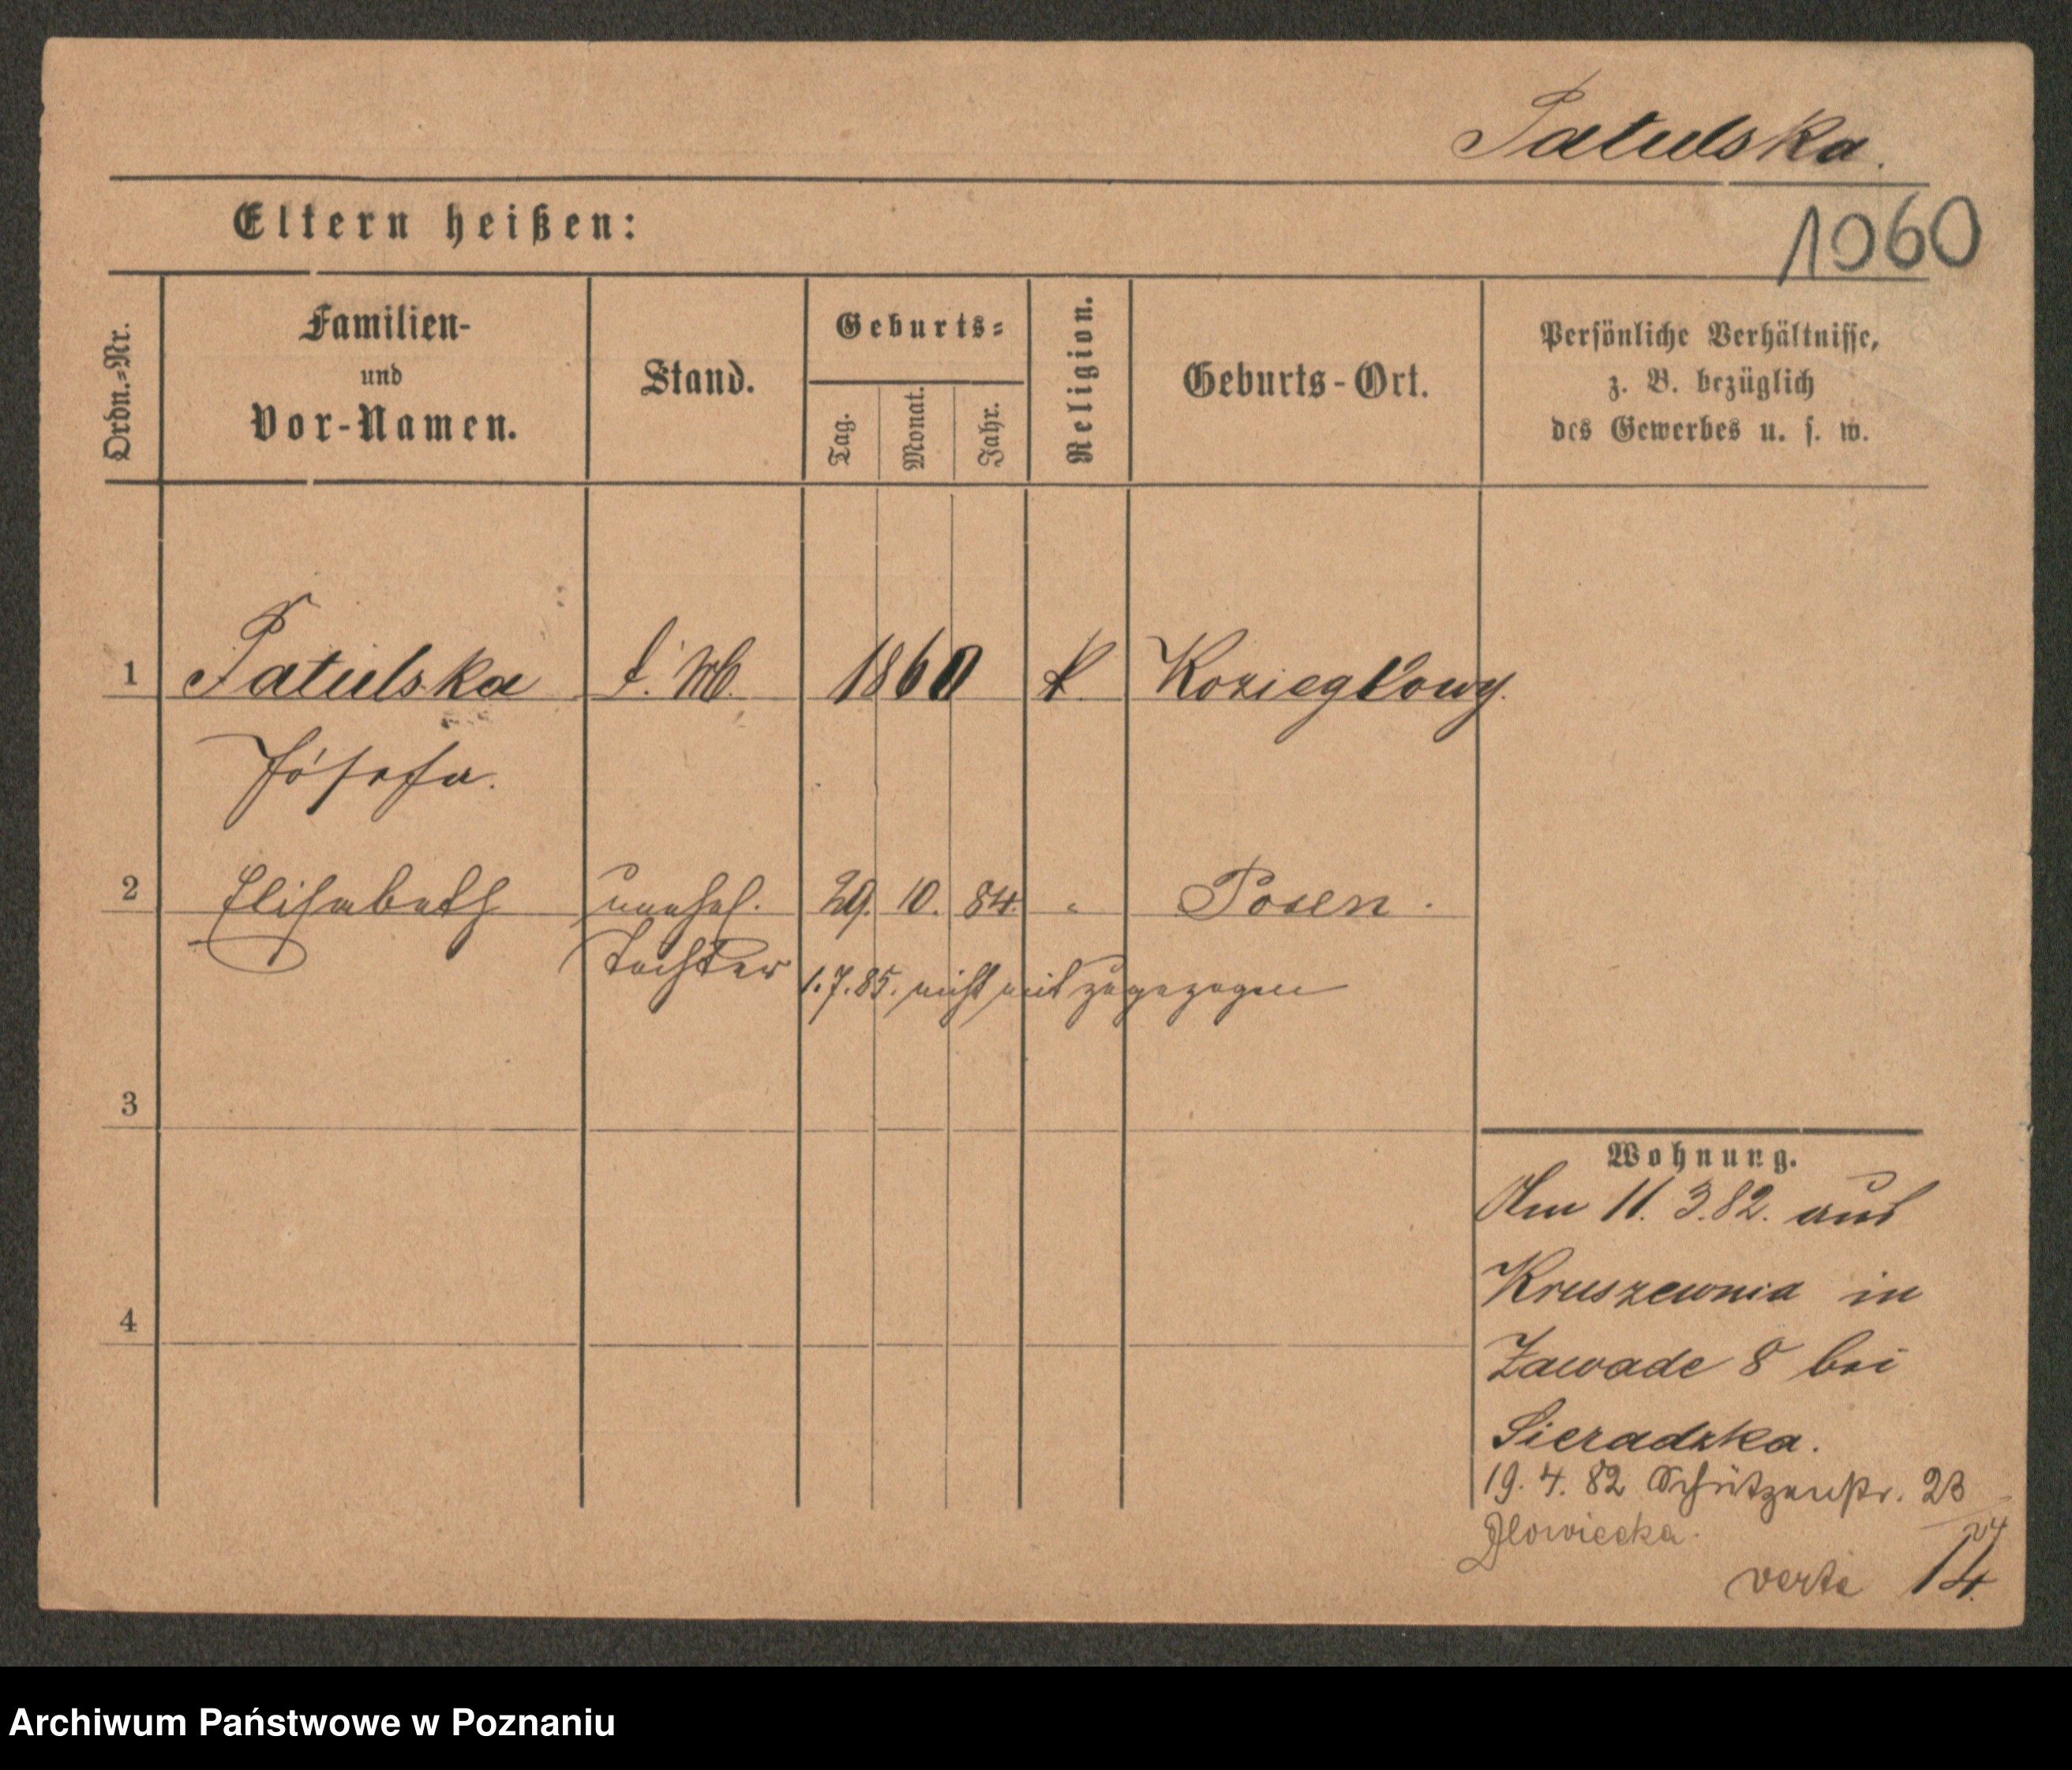 Patulska.
Eltern heißen:
1060
Ordn.-Nr.
Familien-
und
Vor-Namen.
Stand.
Geburts-
Tag.
Monat.
Jahr.
Religion.
Geburts-Ort.
Persönliche Verhältnisse,
z. B. bezüglich
des Gewerbes u. s. w.
1 Patulska 1860 k. Koziegłowy.
Jósefa.
2 Elisabeth unehel. 29. 10. 84. " Posen.
Tochter 1.7.85. nicht mit zugezogen
3
4
Wohnung.
Am 11. 3.82. aus
Kruszewnia in
Zawade 8 bei
Sieradzka.
19. 4. 82 Schützenstr. 23
verte 14.
Archiwum Państwowe w Poznaniu